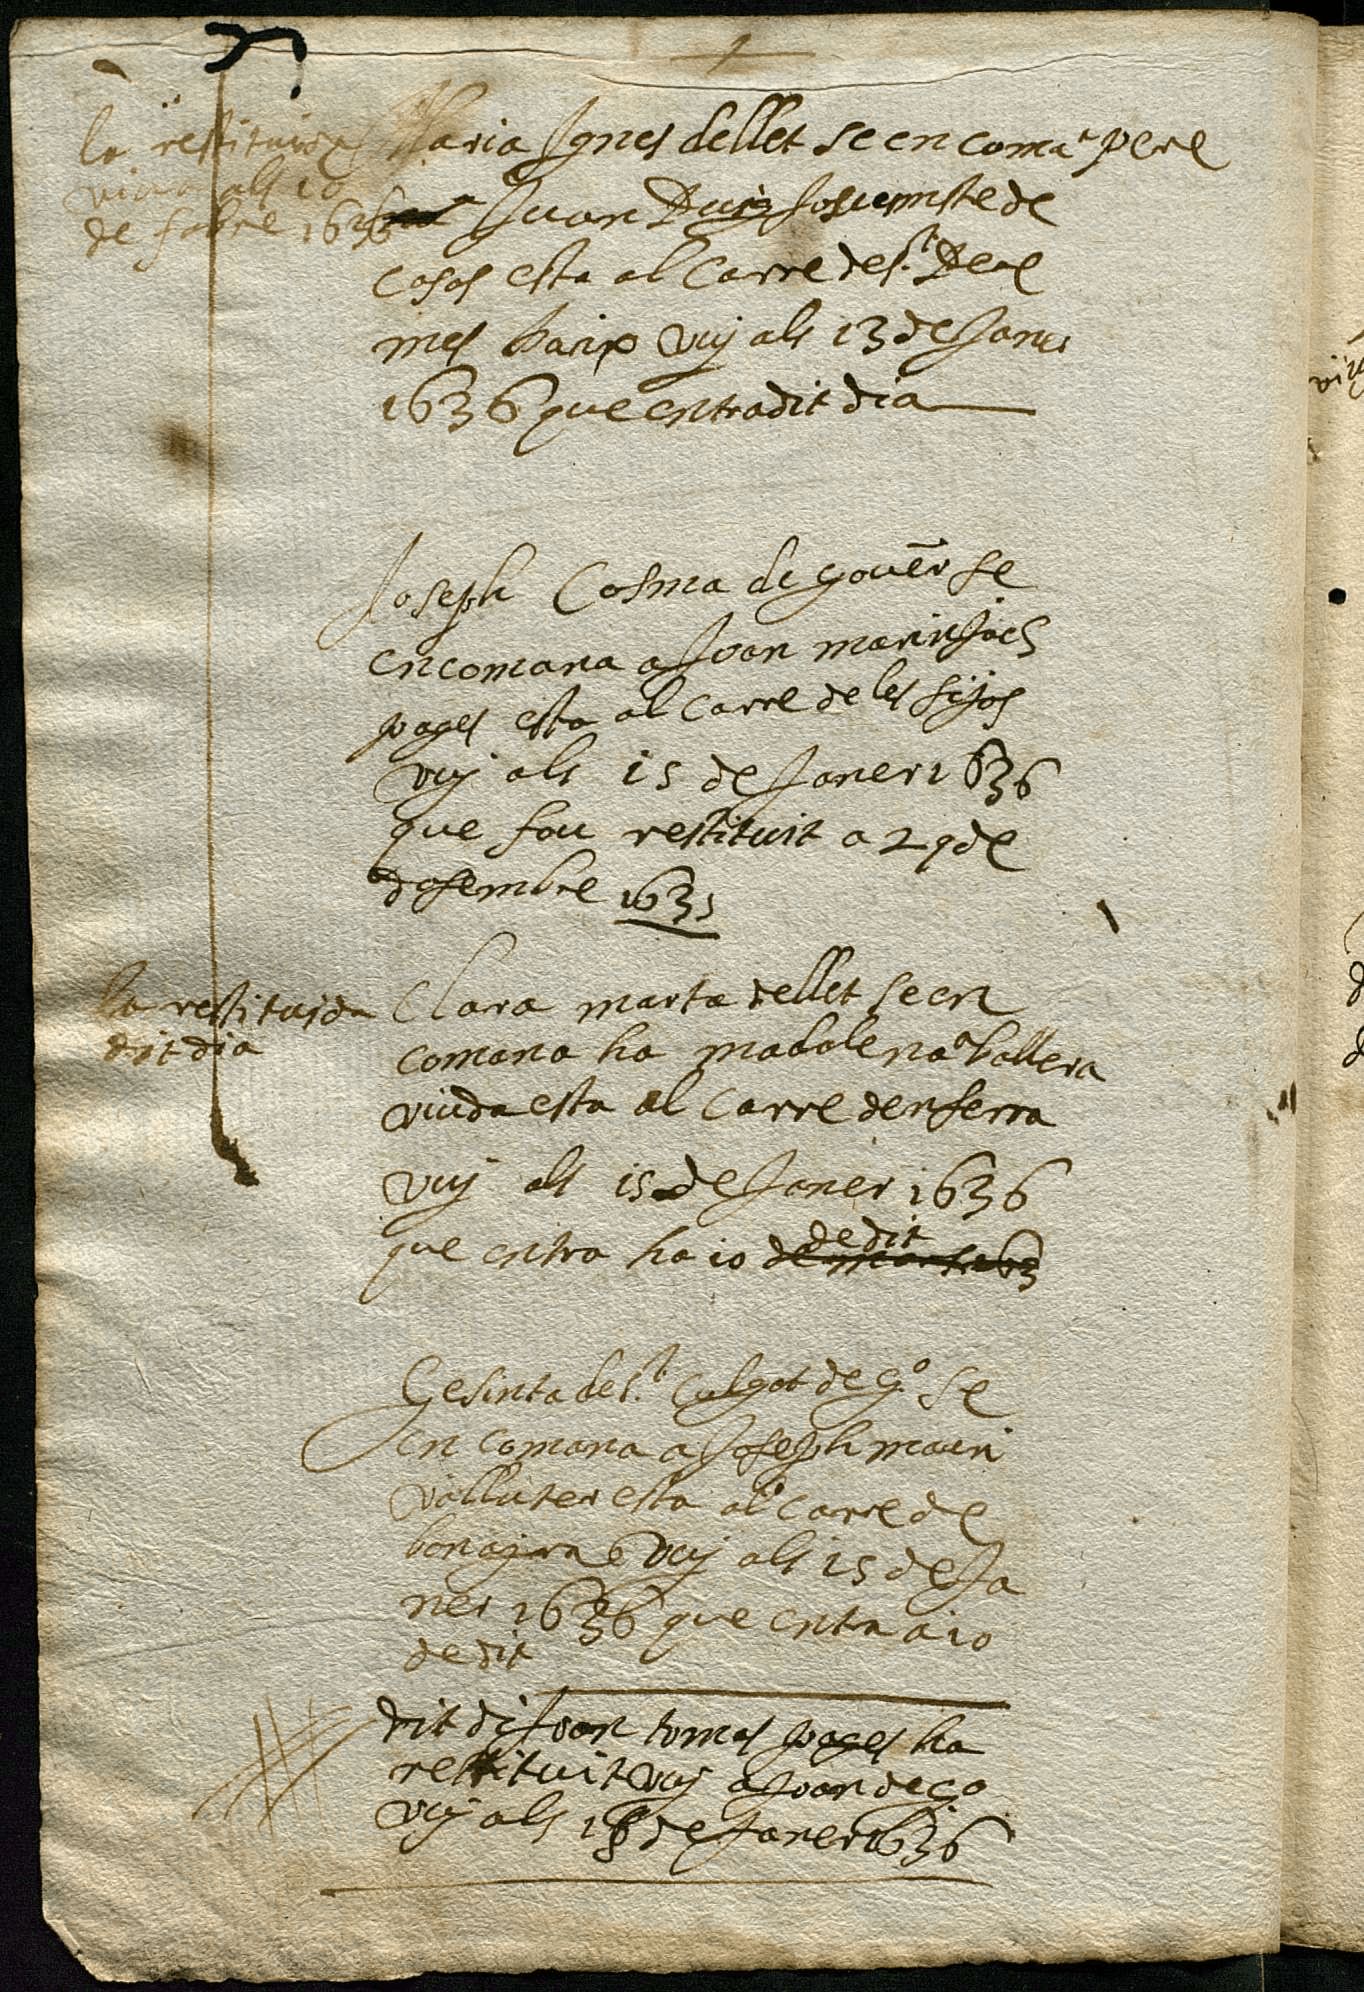 la restituiren
viva als 10
de febre 1636
Maria Ignes de llet se encomaa Pere
Juan Puig sosuenste de
casas esta al carre de st Pere
mes baix vuy als 13 de Janer
1636 que entra dit dia
Joseph Cosma de gover se
encomana a Joan
pages esta al carre de les sijas
vuy als 15 de Janer 1636
que fou restituit a 29 de
desembre 1635
la restituida
dit dia
Clara marta de llet se en
comana ha madalena Vallera
viuda esta al carre den serra
vuy als 15 de Janer 1636
que entra ha 10 de dit
Gesinta de st culgat de go se
en comana a Joseph mauri
valluter esta al carre de
bonayre vuy als 15 de Ja
ner 1636 que entra a 10
de dit
dit di Joan tomas pages ha
restituit vuy a Joan de go
vuy als 18 de Janer 1636